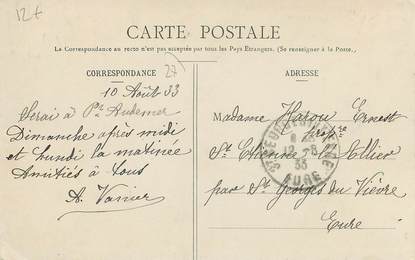 12+
CARTE POSTALE
La Correspondance au recto n'est pas acceptée par tous les Pays Etrangers. (Se renseigner à la Poste.)
CORRESPONDANCE
27
10 Août 33
Serai à Pt Audemer
Dimanche après midi
et Lundi la matinée
Amitiés à tous
A. Vanier
ADRESSE
Madame Harou Ernest
St Etienne l'Allier
par St Georges du Vièvre
Eure
12-8
33
EURE